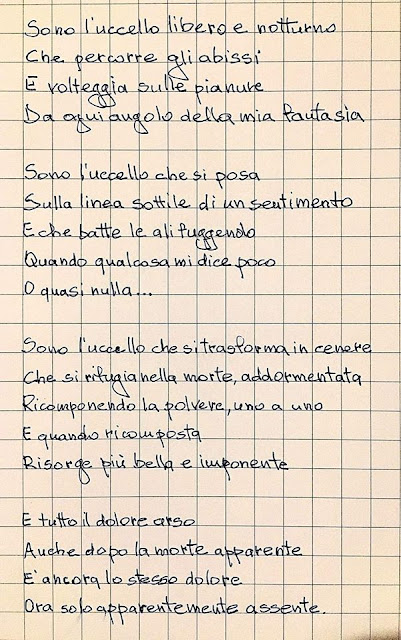 Sono l'uccello libero e notturno
Che percorre gli abissi
E volteggia sulle pianure
Da ogni angolo della mia fantasia
Sono l'uccello che si posa
Sulla linea sottile di un sentimento
E che batte le ali fuggendo
Quando qualcosa mi dice poco
O quasi nulla...
Sono l'uccello che si trasforma in cenere
Che si rifugia nella morte, addormentata
Ricomponendo la polvere, uno a uno
E quando ricomposta
Risorge più bella e imponente
E tutto il dolore arso
Anche dopo la morte apparente
E' ancora lo stesso dolore
Ora solo apparentemente assente.